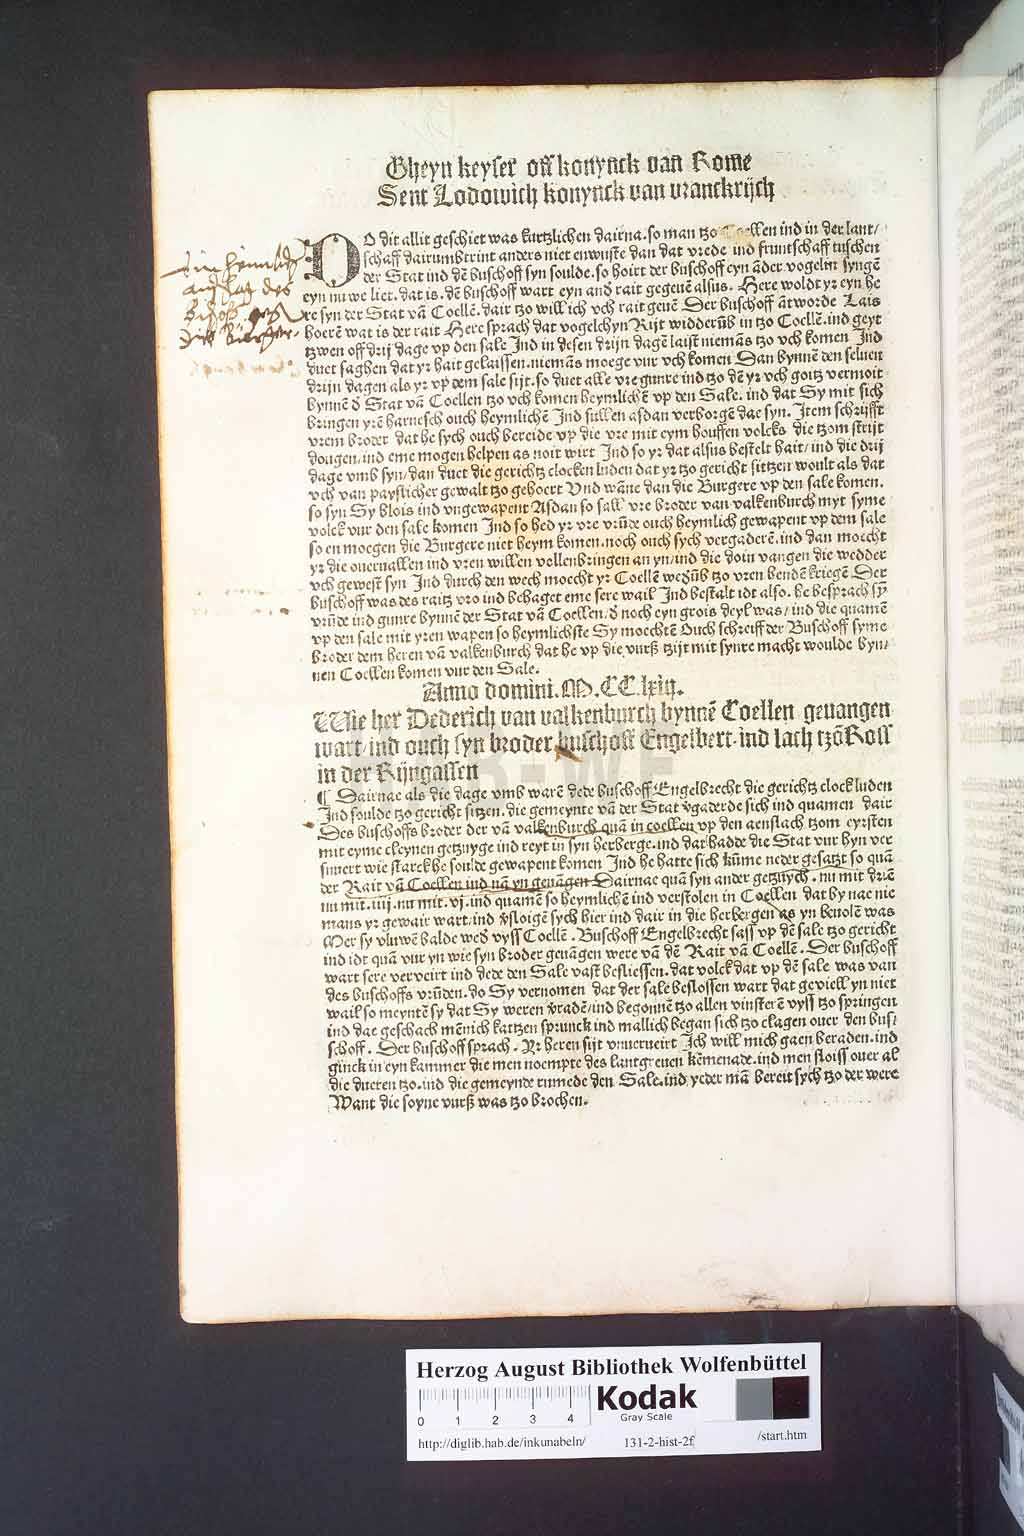 Gheyn keyser off konynck van Rome
Sent Lodowich konynck van vranckrijch
DO dit allit geschiet was kurtzlichen dairna. so man tzo Coellen ind in der lant/
schaff dairumbtrint anders niet enwuste dan dat vrede ind fruntschaff tuschen
der Stat ind dē buschoff syn soulde. so hoirt der buschoff eyn āder vogelin syngē
eyn nu we liet. dat is. dē buschoff wart eyn and rait gegeuē alsus. Here woldt yr eyn he
re syn der Stat vā Coellē. dair tzo will ich vch rait geuē Der buschoff ātworde Lais
hoerē wat is der rait Here sprach dat vogelchyn Rijt widderūb in tzo Coellē. ind geyt
tzwen off drij dage vp den sale Ind in desen drijn dagē laist niemās tzo vch komen Ind
duet saghen dat yr hait gelaissen. niemās moege vur vch komen Dan bynnē den seluen
drijn dagen als yr vp dem sale sijt. so duet alle vre gunre ind tzo dē yr vch goitz vermoit
bynnē d Stat vā Coellen tzo vch komen heymlichē vp den Sale. ind dat Sy mit sich
bringen yrē harnesch ouch heymlichē Ind sullen asdan verborgē dae syn. Item schrijfft
vrem broder dat he sych ouch bereide vp die vre mit eym houffen volcks die tzom strijt
dougen/ ind eme mogen helpen as noit wirt Ind so yr dat alsus bestelt hait/ ind die drij
dage vmb syn/ dan duet die gerichtz clocken luden dat yr tzo gericht sittzen woult als dat
vch van payslicher gewalt tzo gehoert Vnd wāne dan die Burgere vp den sale komen.
so syn Sy blois ind vngewapent Asdan so sall vre broder van valkenburch myt syme
volck vur den sale komen Ind so hed yr vre vrūde ouch heymlich gewapent vp dem sale
so en moegen die Burgere niet heym komen. noch ouch sych vergaderē. ind dan moecht
yr die ouernallen ind vren willen vollenbringen an yn/ ind die doin vangen die wedder
vch gewest syn Ind durch den wech moecht yr Coellē wedūb tzo vren bendē kriegē Der
buschoff was des raitz vro ind behaget eme sere wail Ind bestalt idt also. he besprach sȳ
vrūde ind gunre bynnē der Stat vā Coellen. d noch eyn grois deyl was/ ind die quamē
vp den sale mit yren wapen so heymlichste Sy moechtē Ouch schreiff der Buschoff syme
broder dem heren vā valkenburch dat he vp die vurß tzijt mit synre macht woulde byn/
nen Coellen komen vur den Sale.
Anno domini. M. CC. lxiij.
Wie her Dederich van valkenburch bynnē Coellen geuangen
wart/ ind ouch syn broder buschoff Engelbert. ind lach tzō Roß
in der Rijngassen
¶ Dairnae als die dage vmb warē dede buschoff Engelbrecht die gerichtz clock luden
Ind soulde tzo gericht sitzen. die gemeynte vā der Stat vgaderde sich ind quamen dair
Des buschoffs broder der vā valkenburch quā in coellen vp den aenslach tzom eyrsten
mit eyme cleynen getzuyge ind reyt in syn herberge. ind dat hadde die Stat vur hyn ver
suuert wie starck he soulde gewapent komen Ind he hatte sich kūme neder gesatzt so quā
der Rait vā Coellen ind nā yn geuāgen Dairnae quā syn ander getzuych. nu mit driē
nu mit. iiij. nu mit. vj. ind quamē so heymlichē ind verstolen in Coellen dat by nae nie
mans yr gewair wart/ ind vsloigē sych hier ind dair in die herbergen as yn beuolē was
Mer sy vluwē balde wed vyss Coellē. Buschoff Engelbrecht sass vp dē sale tzo gericht
ind idt quā vur yn wie syn broder geuāgen were vā dē Rait vā Coellē. Der buschoff
wart sere verveirt ind dede den Sale vast besliessen. dat volck dat vp dē sale was van
des buschoffs vrūden. do Sy vernomen dat der sale beslossen wart dat geviell yn niet
wail so meyntē sy dat Sy weren vradē/ ind begonnē tzo allen vinsterē vyss tzo springen
ind dae geschach mēnich katzen sprunck ind mallich began sich tzo clagen ouer den bus/
schoff. Der buschoff sprach. Yr heren sijt vnuerueirt Ich will mich gaen beraden. ind
ginck in eyn kammer die men noempte des lantgreuen kemenade. ind men sloiss ouer al
die dueren tzo. ind die gemeynde rumede den Sale. ind yeder mā bereit sych tzo der were
Want die soyne vurß was tzo brochen.
Herzog August Bibliothek Wolfenbüttel
0 1 2 3 4
Kodak
Gray Scale
http://diglib.hab.de/inkunabeln/ 131-2-hist-2f /start.htm